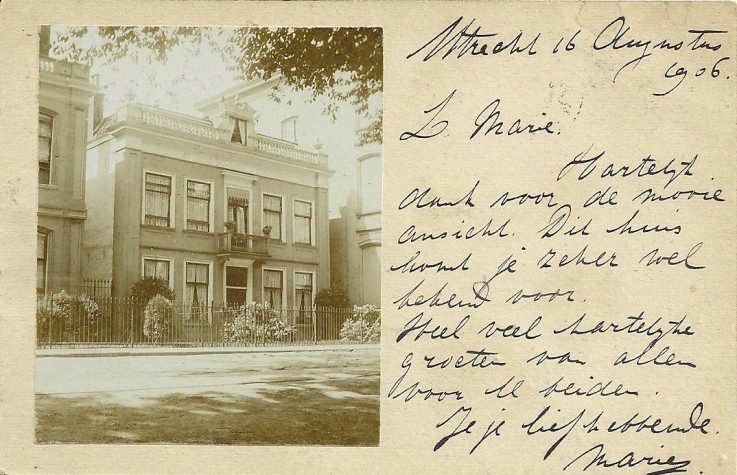 Utrecht 16 Augustus
1906.
L Marie.
Hartelijk
dank voor de mooie
ansicht. Dit huis
komt je zeker wel
bekend voor.
Heel veel hartelijke
groeten van allen
voor U beiden.
Je je liefhebbende.
Marie